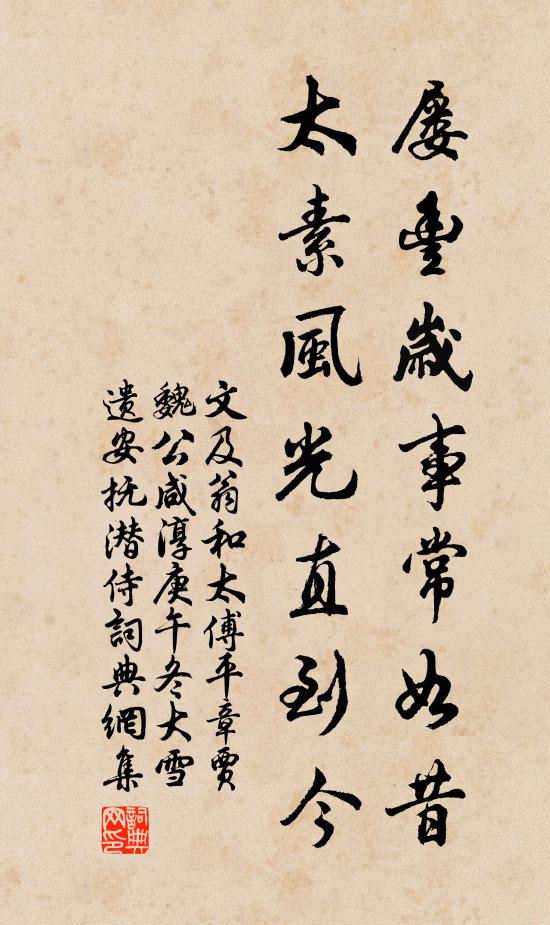 屡豐歲事常如昔
太素風光直到今
文及翁和太傅平章賈
魏公咸淳庚午冬大雪
遺安抚潜侍詞典網集
詞典网印